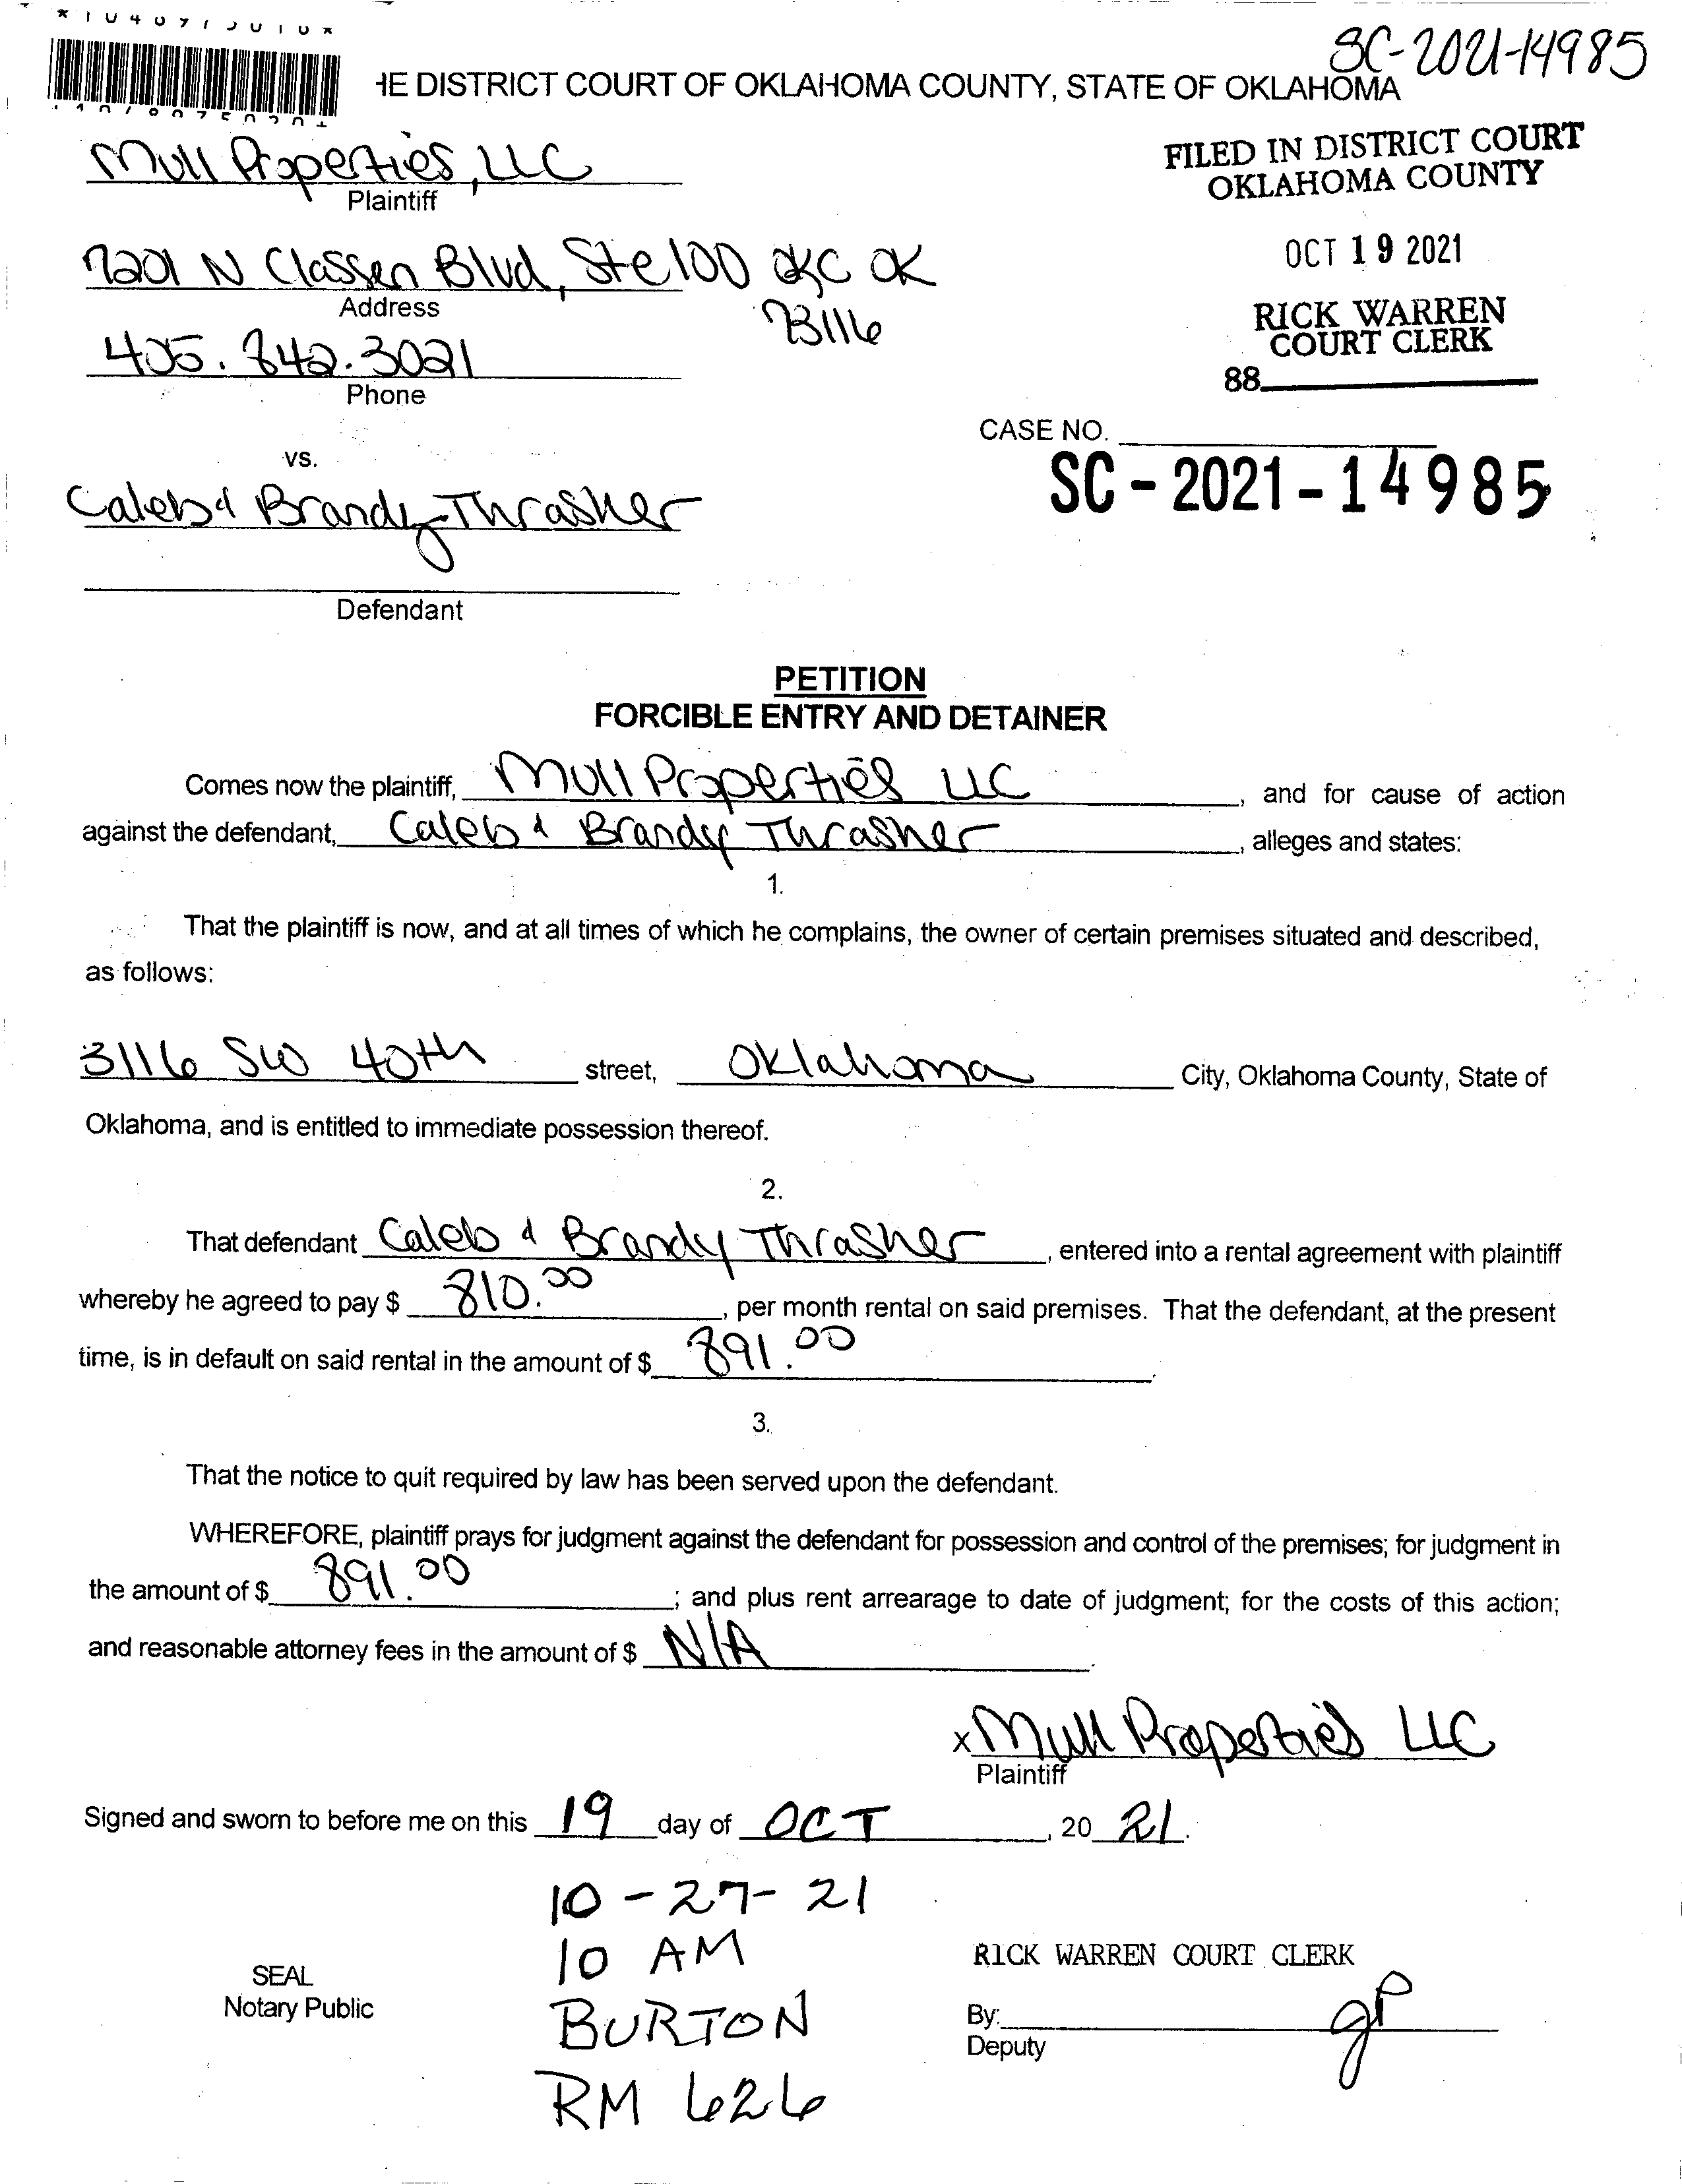 SC-2021-14985
HE DISTRICT COURT OF OKLAHOMA COUNTY, STATE OF OKLAHOMA
Mull Properties, LLC
Plaintiff
FILED IN DISTRICT COURT
OKLAHOMA COUNTY
7201 N Classen Blvd, Ste 100 OKC OK
73116
Address
OCT 19 2021
405.842.3021
Phone
RICK WARREN
COURT CLERK
88
CASE NO.
SC-2021-14985
vs.
Caleb & Brandy Thrasher
Defendant
PETITION
FORCIBLE ENTRY AND DETAINER
Comes now the plaintiff, Mull Properties LLC, and for cause of action
against the defendant, Caleb & Brandy Thrasher, alleges and states:
1.
That the plaintiff is now, and at all times of which he complains, the owner of certain premises situated and described,
as follows:
3116 SW 40th street, Oklahoma City, Oklahoma County, State of
Oklahoma, and is entitled to immediate possession thereof.
2.
That defendant Caleb & Brandy Thrasher, entered into a rental agreement with plaintiff
whereby he agreed to pay $ 810.00, per month rental on said premises. That the defendant, at the present
time, is in default on said rental in the amount of $ 891.00.
3.
That the notice to quit required by law has been served upon the defendant.
WHEREFORE, plaintiff prays for judgment against the defendant for possession and control of the premises; for judgment in
the amount of $ 891.00; and plus rent arrearage to date of judgment; for the costs of this action;
and reasonable attorney fees in the amount of $ N/A.
x Mull Properties LLC
Plaintiff
Signed and sworn to before me on this 19 day of OCT, 20 21.
10-27-21
10 AM
BURTON
RM 626
SEAL
Notary Public
RICK WARREN COURT CLERK
By: gP
Deputy